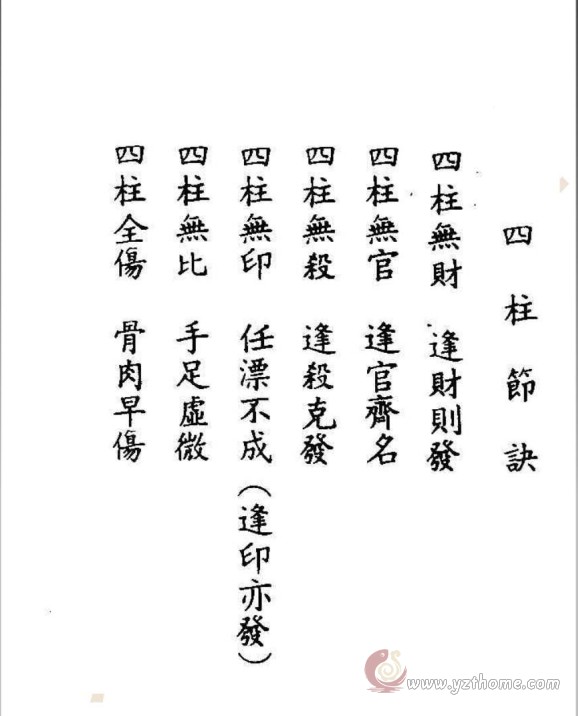 四柱節訣
四柱無財 逢財則發
四柱無官 逢官齊名
四柱無殺 逢殺克發
四柱無印 任漂不成(逢印亦發)
四柱無比 手足虛微
四柱全傷 骨肉早傷
www.yzthome.com